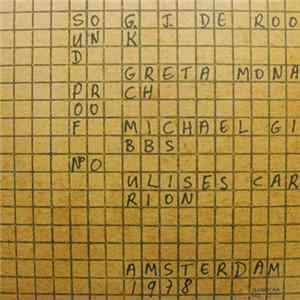 SO G. J. DE ROO
UN K
D
GRETA MONA
PR CH
OO
F MICHAEL GI
BBS
No
ULISES CAR
RION
AMSTERDAM
1978